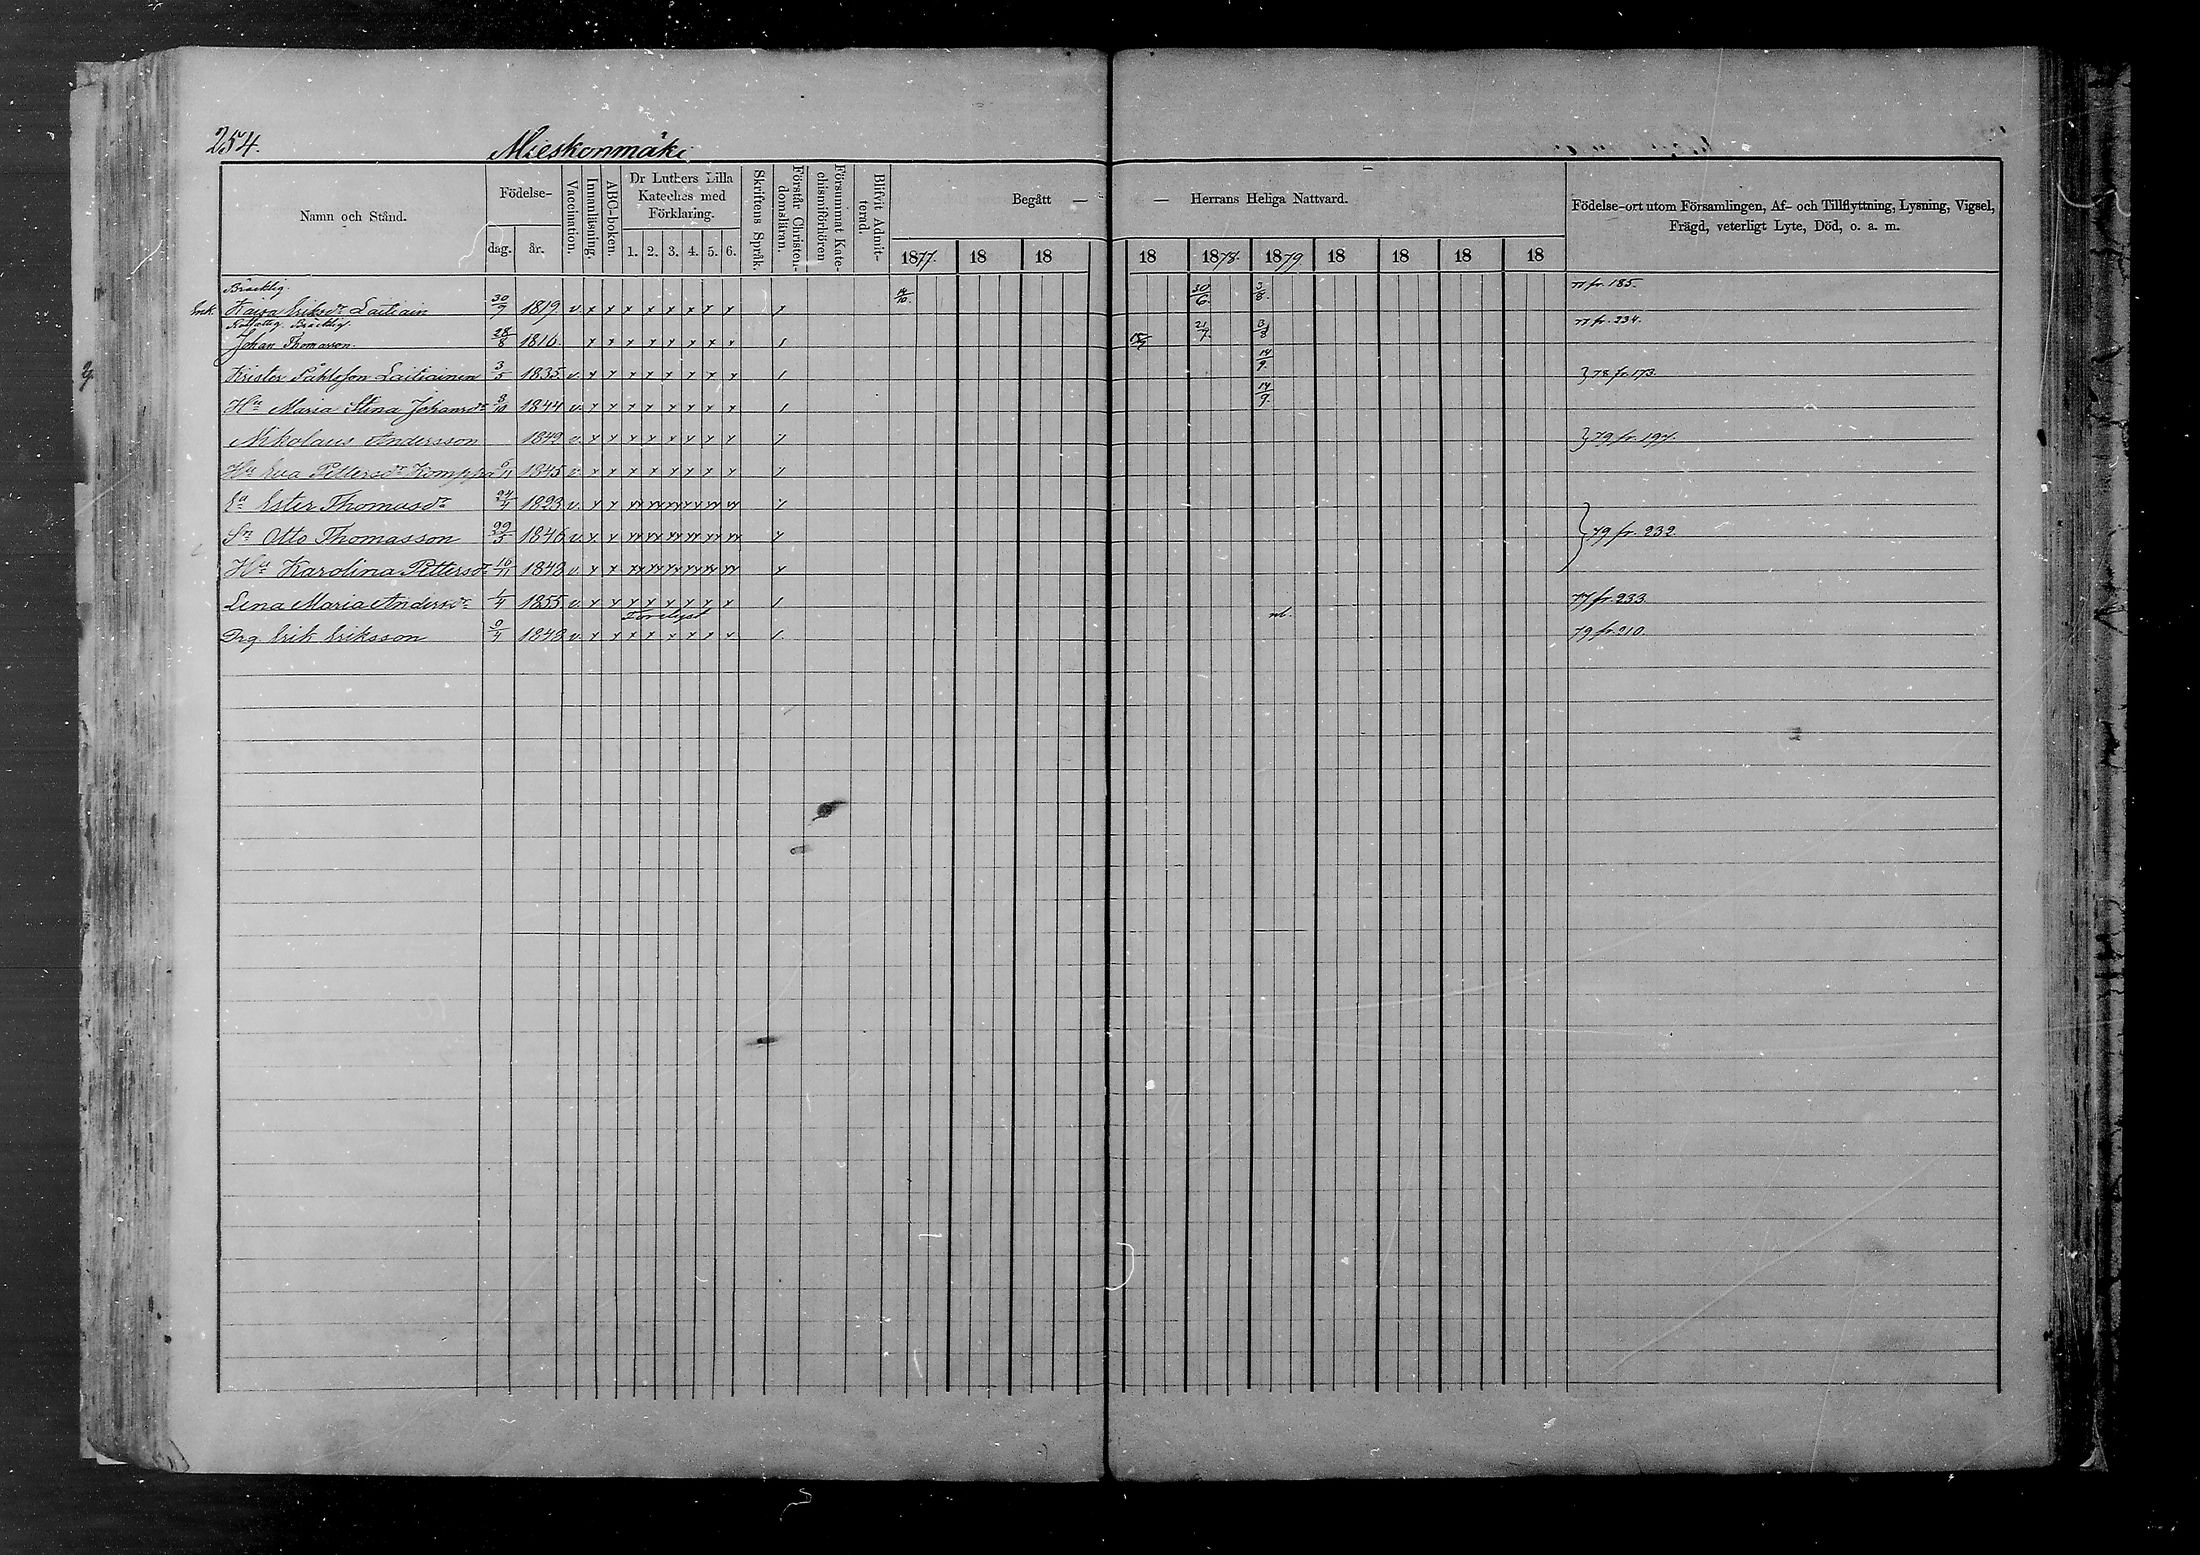 254.
Mieskonmäki
Namn och Stånd.
Födelse-
dag. år.
Vaccination.
Innanläsning.
ABC-boken.
Dr Luthers Lilla Kateches med Förklaring.
1. 2. 3. 4. 5. 6.
Skriftens Språk.
Förstår Christendomsläran.
Försummat Katechismiförhören
Blifvit Admitterad.
Begått — — Herrans Heliga Nattvard.
1877. 18 18 18 1878. 1879 18 18 18 18
Födelse-ort utom Församlingen, Af- och Tillflyttning, Lysning, Vigsel,
Frägd, veterligt Lyte, Död, o. a. m.
Bräcklig.
Enk. Kaisa Eriksdr Laitiain 30/9 1819. v. x x x x x x x x 14/10. 30/6. 3/8. 77 fr. 185.
Bräcklig.
Johan Thomasson. 28/8 1816. x x x x x x x x 21/7. 3/8 77 fr. 234.
Krister Påhlsson Laitiainen 3/5 1835. v. x x x x x x x x 14/9. } 78 fr. 173.
Hu Maria Stina Johansdr 8/10 1844 v. x x x x x x x x 14/9.
Nikolaus Andersson 1849 v. x x x x x x x x } 79 fr. 197.
Hu Eva Pettersdr Komppa 6/11 1845 v. x x x x x x x x
Ea Ester Thomasdr 24/4 1823 v. x x xx xx xx xx xx xx
Sn Otto Thomasson 29/3 1846 v. x x xx xx xx xx xx xx } 79 fr. 232.
Hu Karolina Pettersdr 16/11 1843 v. x x xx xx xx xx xx xx
Lena Maria Andersdr 1/4 1855 v. x x x x x x x x 77 fr. 233.
Förelyst nb.
Drg Erik Eriksson 9/4 1843 v. x x x x x x x x 79 fr. 210.